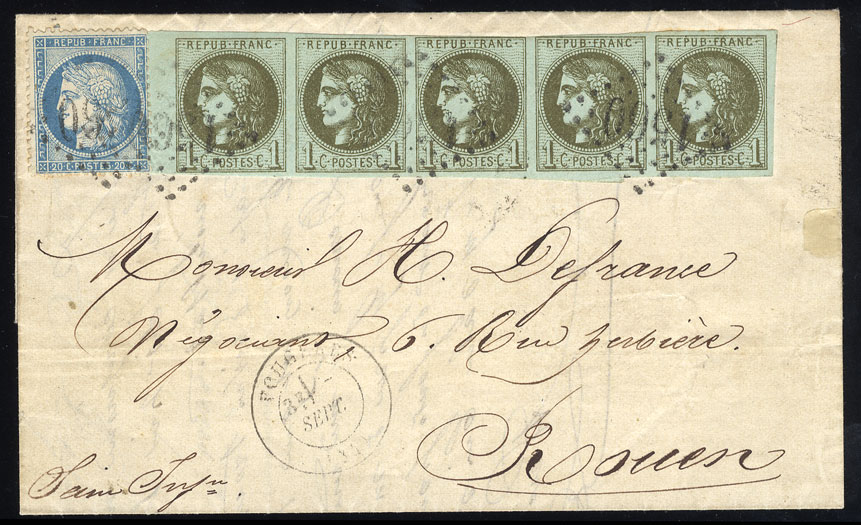 REPUB·FRANC· REPUB·FRANC· REPUB·FRANC· REPUB·FRANC· REPUB·FRANC· REPUB·FRANC·
20·C·POSTES·20·C 1·C·POSTES·C·1 1·C·POSTES·C·1 1·C·POSTES·C·1 1·C·POSTES·C·1 1·C·POSTES·C·1
Monsieur H. Defrance
Négociant 6. Rue herbière.
FOUGERES
SEPT.
Rouen
Seine Infre